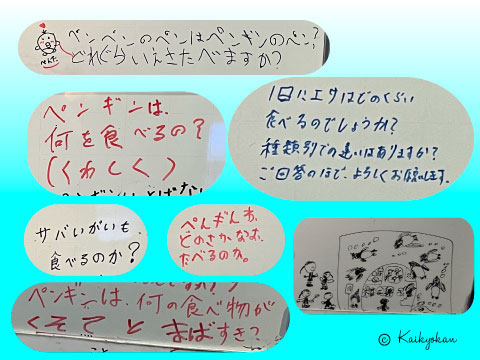 ペンペンのペンはペンギンのペン?
どれぐらいえさたべますか?
ペンギンは、
何を食べるの?
(くわしく)
1日にエサはどのくらい
食べるのでしょうか?
種類別での違いはありますか?
ご回答のほど、よろしくお願いします。
サバいがいも、
食べるのか?
ぺんぎんわ、
どのさかなお、
たべるのか。
ペンギンは、何の食べ物が
すき?
© Kaikyokan